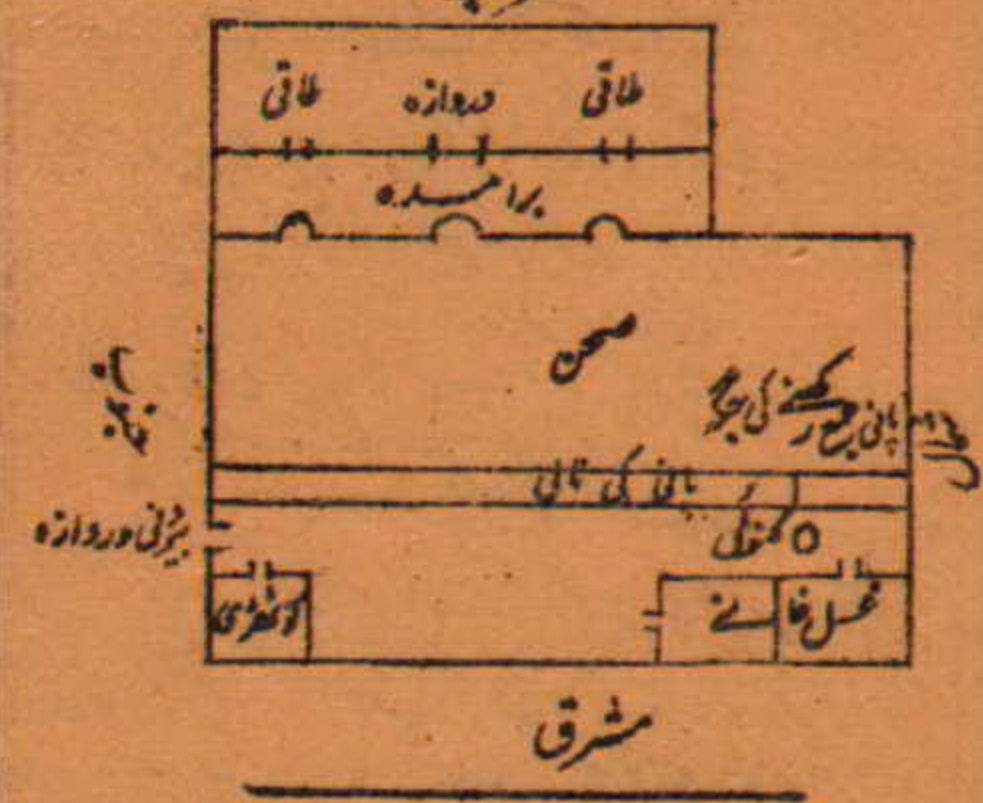 طاقی دروازہ طاقی
برامدہ
صحن
جنوب
پانی
رکھنے کی جگہ
پانی کی نالی
بیرونی دروازہ
کوٹھڑی
غسل خانے
مشرق